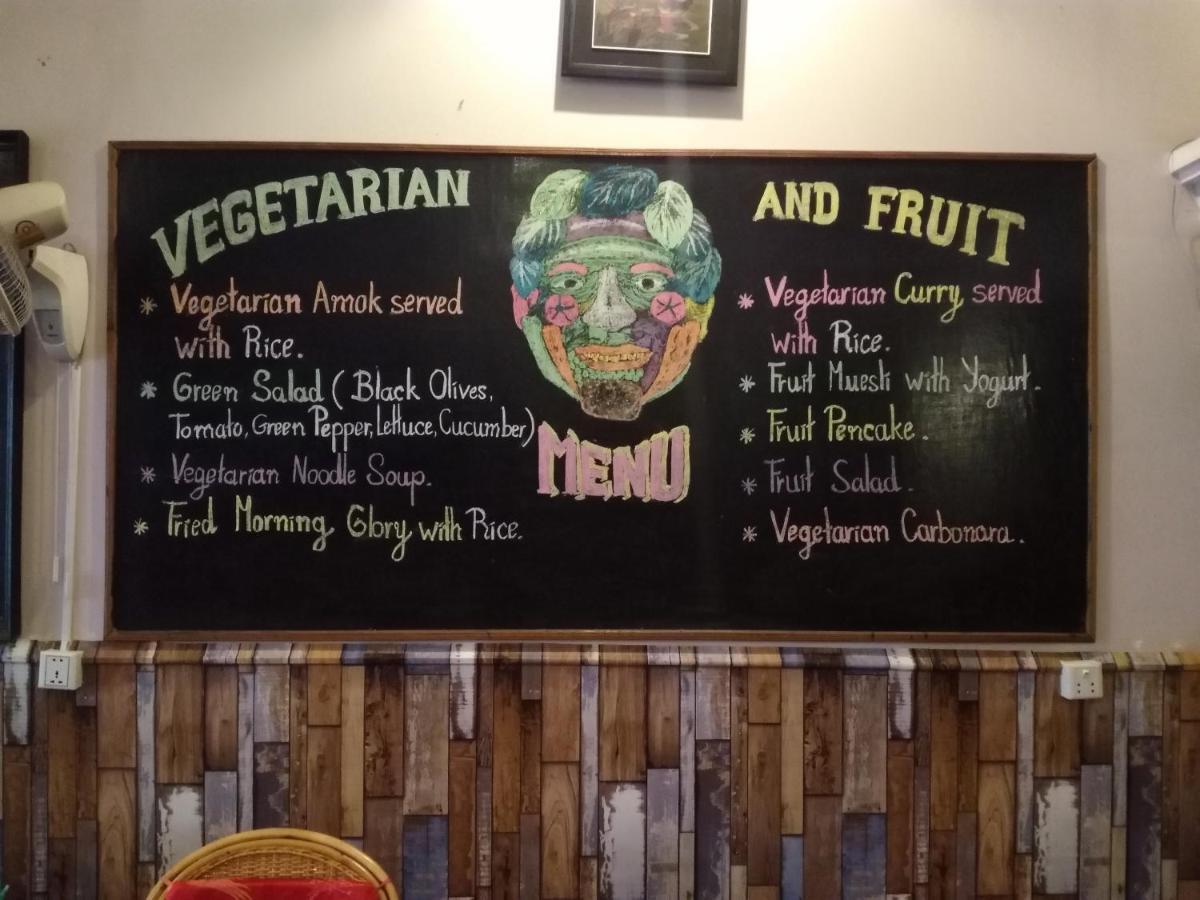 VEGETARIAN
* Vegetarian Amok served
with Rice.
* Green Salad ( Black Olives,
Tomato, Green Pepper, Lettuce, Cucumber)
* Vegetarian Noodle Soup.
* Fried Morning Glory with Rice.
MENU
AND FRUIT
* Vegetarian Curry served
with Rice.
* Fruit Muesli with Yogurt.
* Fruit Pencake.
* Fruit Salad.
* Vegetarian Carbonara.